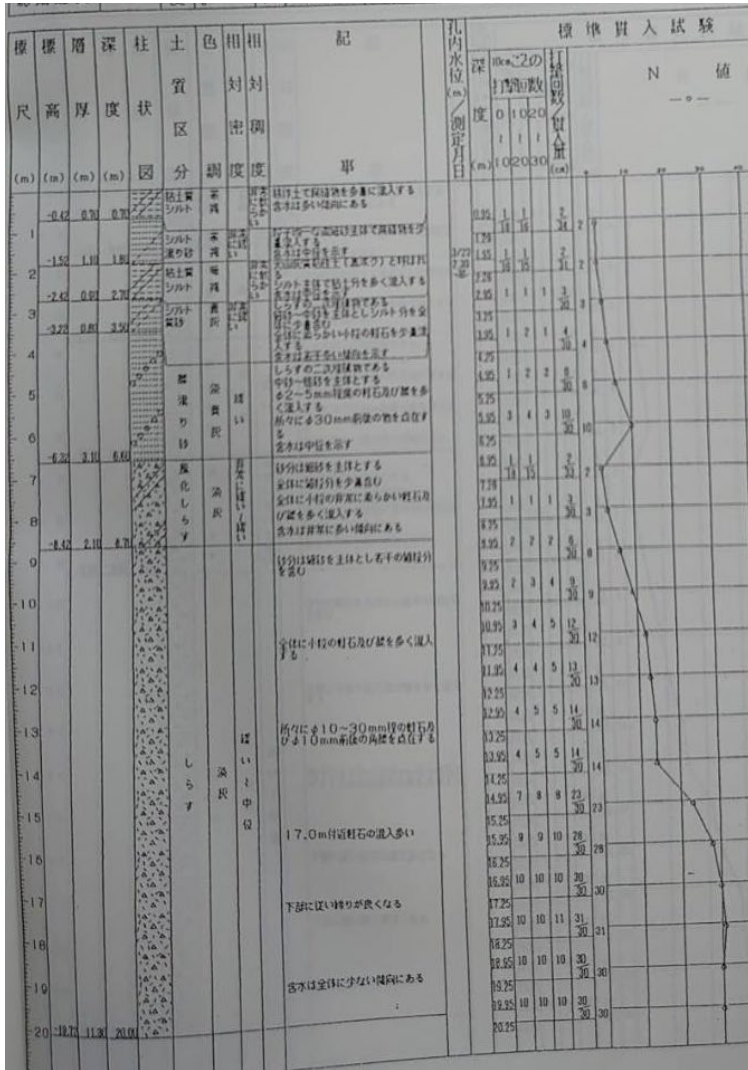 標尺(m)
標高(m)
層厚(m)
深度(m)
柱状図
土質区分
色調
相対密度
相対稠度
記事
孔内水位(m)/測定月日
標準貫入試験
深度(m)
10cmごとの打撃回数
0~10
10~20
20~30
打撃回数/貫入量(cm)
N値
-0.42 0.70 0.70
粘土質シルト
含水は多い傾向にある
-1.52 1.10 1.80
シルト混り砂
含水は中位を示す
-2.42 0.90 2.70
粘土質シルト
シルト主体で粘土分を多く混入する
-3.22 0.80 3.50
シルト質砂
しらすの二次堆積物である
含水は若干多い傾向を示す
-6.32 3.10 6.60
礫混り砂
淡黄灰
緩い
しらすの二次堆積物である
中砂~粗砂を主体とする
φ2~5mm程度の軽石及び礫を多く混入する
所々にφ30mm前後の物を点在する
含水は中位を示す
-8.42 2.10 8.70
風化しらす
淡灰
非常に緩い~緩い
砂分は細砂を主体とする
全体に細粒分を少量含む
全体に小粒の非常に柔らかい軽石及び礫を多く混入する
含水は非常に多い傾向にある
-19.72 11.30 20.00
しらす
淡灰
緩い~中位
砂分は細砂を主体とし若干の細粒分を含む
全体に小粒の軽石及び礫を多く混入する
所々にφ10~30mm程の軽石及びφ10mm前後の角礫を点在する
17.0m付近軽石の混入多い
下部に従い締りが良くなる
含水は全体に少ない傾向にある
1
2
3
4
5
6
7
8
9
10
11
12
13
14
15
16
17
18
19
20
0.95
1.95
2.95 1 1 1 3/30 3
3.25
3.95 1 2 1 4/30 4
4.25
4.95 1 2 2
5.25
5.95 3 4 3 10/30 10
6.25
6.95
7.95 1 1 1 3/30 3
8.25
8.95 2 2 2 6/30 6
9.25
9.95 2 3 4 9/30 9
10.25
10.95 3 4 5 12/30 12
11.25
11.95 4 4 5 13/30 13
12.25
12.95 4 5 5 14/30 14
13.25
13.95 4 5 5 14/30 14
14.25
14.95 7 8 8 23/30 23
15.25
15.95 9 9 10 28/30 28
16.25
16.95 10 10 10 30/30 30
17.25
17.95 10 10 11 31/30 31
18.25
18.95 10 10 10 30/30 30
19.25
19.95 10 10 10 30/30 30
20.25